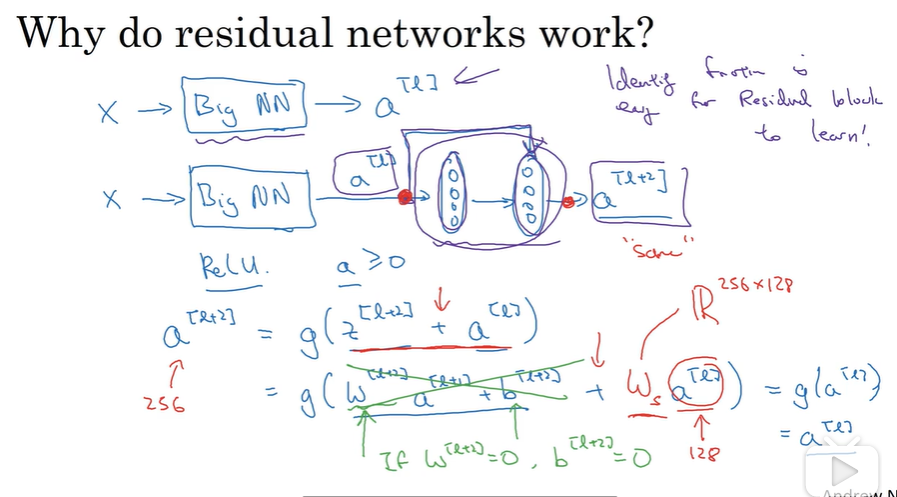 Why do residual networks work?
X → Big NN → a^[l]
Identity function is
easy for Residual block
to learn!
X → Big NN a^[l] → a^[l+2]
"same"
ReLU. a ≥ 0
ℝ^256×128
a^[l+2] = g(z^[l+2] + a^[l])
256 = g(W^[l+2] a^[l+1] + b^[l+2] + W_s a^[l]) = g(a^[l])
= a^[l]
If W^[l+2] = 0, b^[l+2] = 0 128
Andrew N